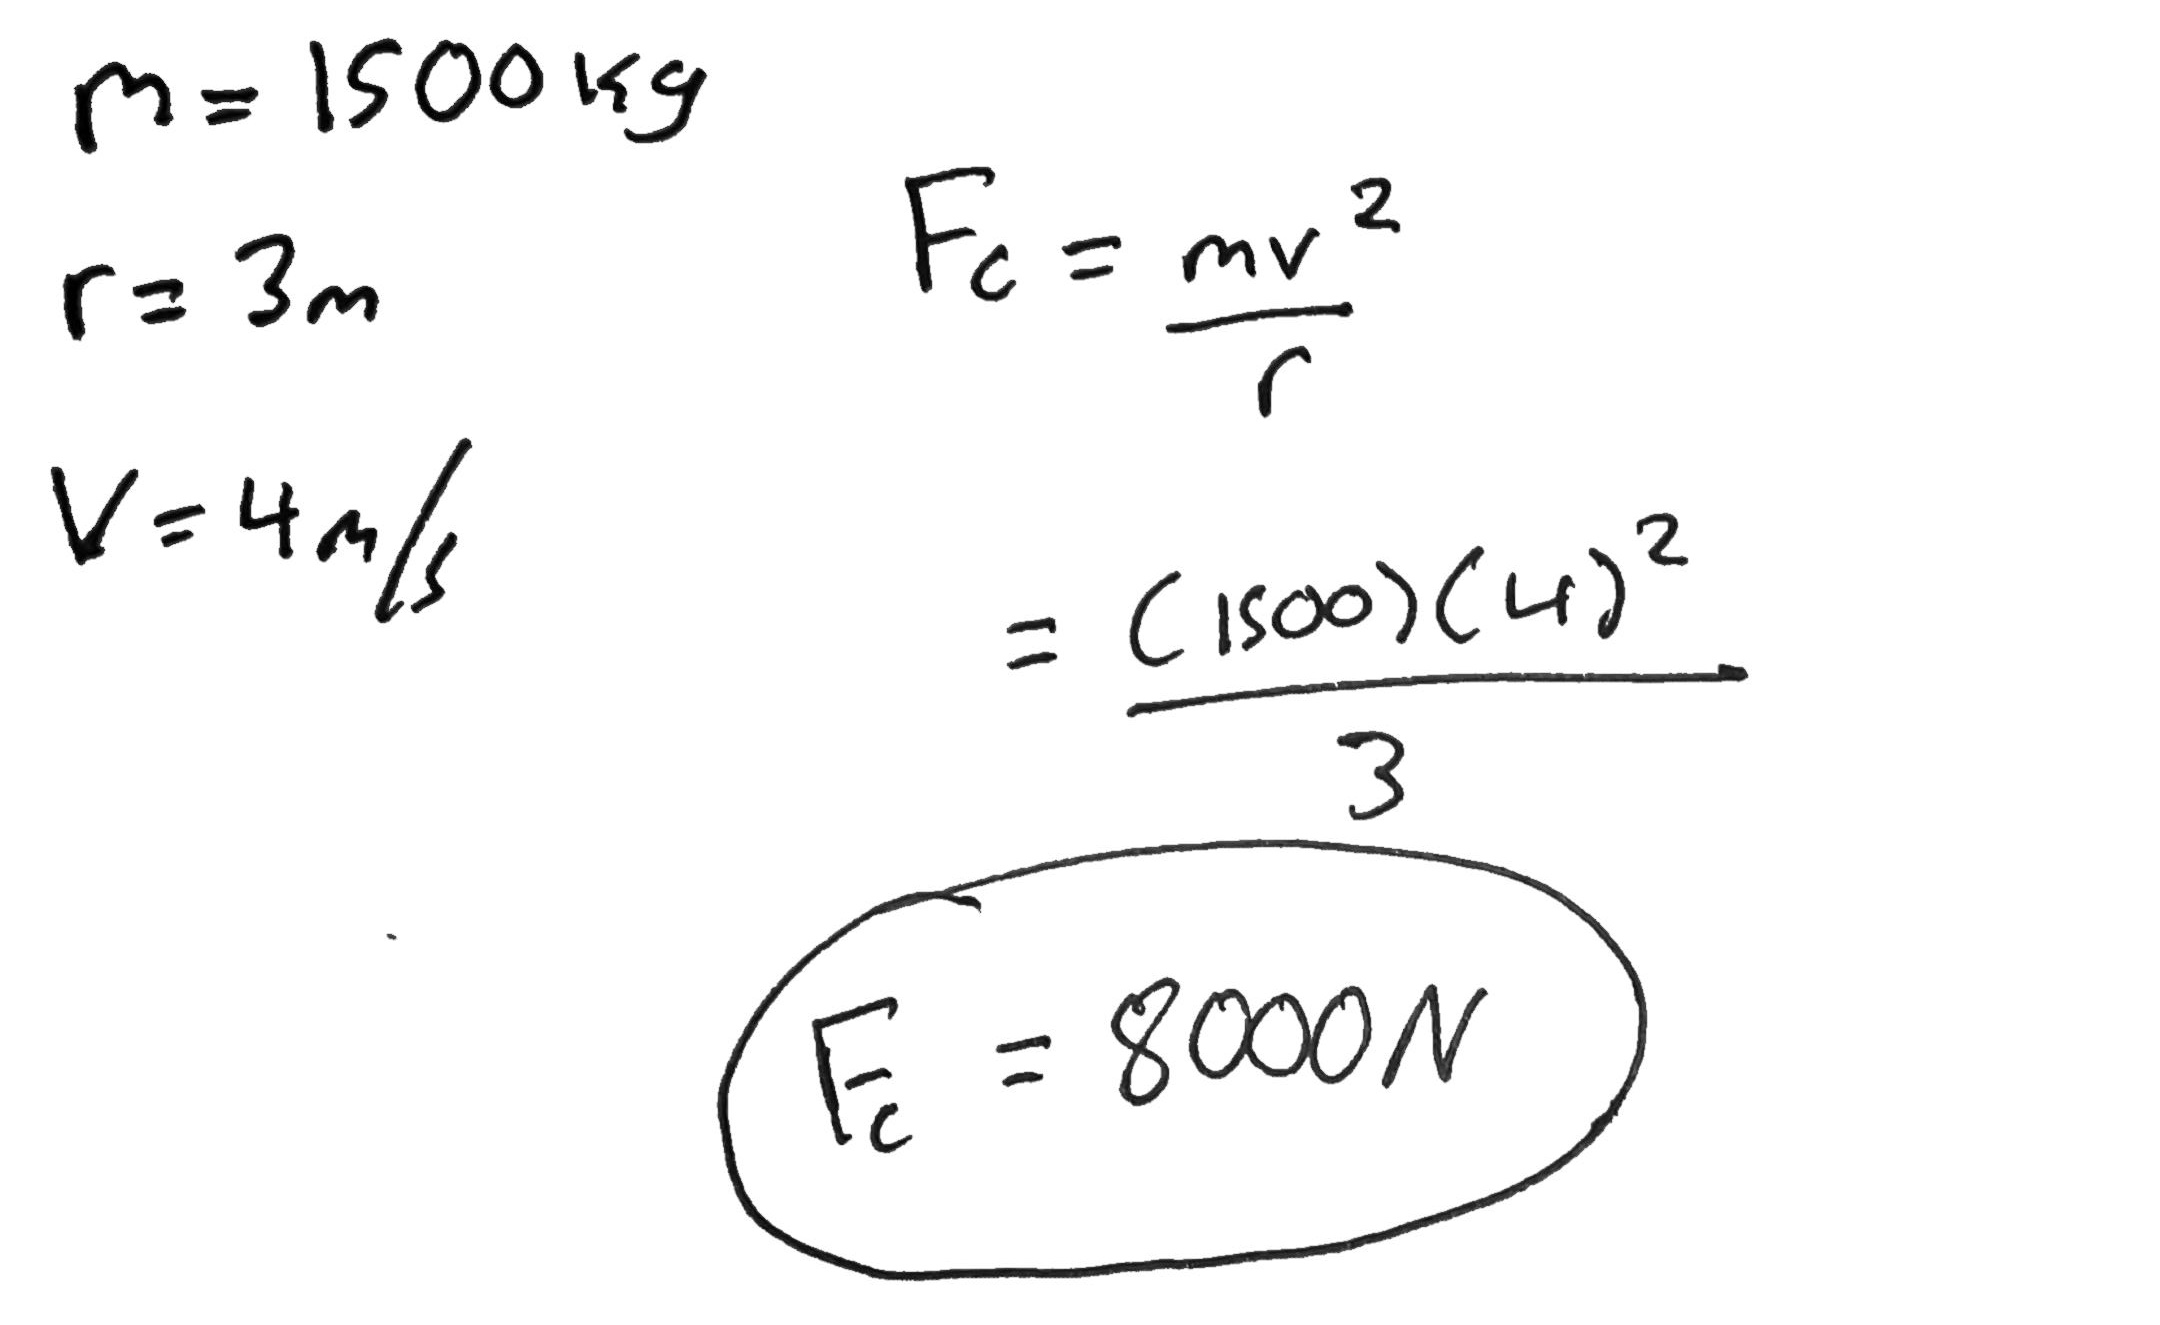 m = 1500 kg
r = 3 m
V = 4 m/s
Fc = mv²
r
= (1500)(4)²
3
Fc = 8000 N